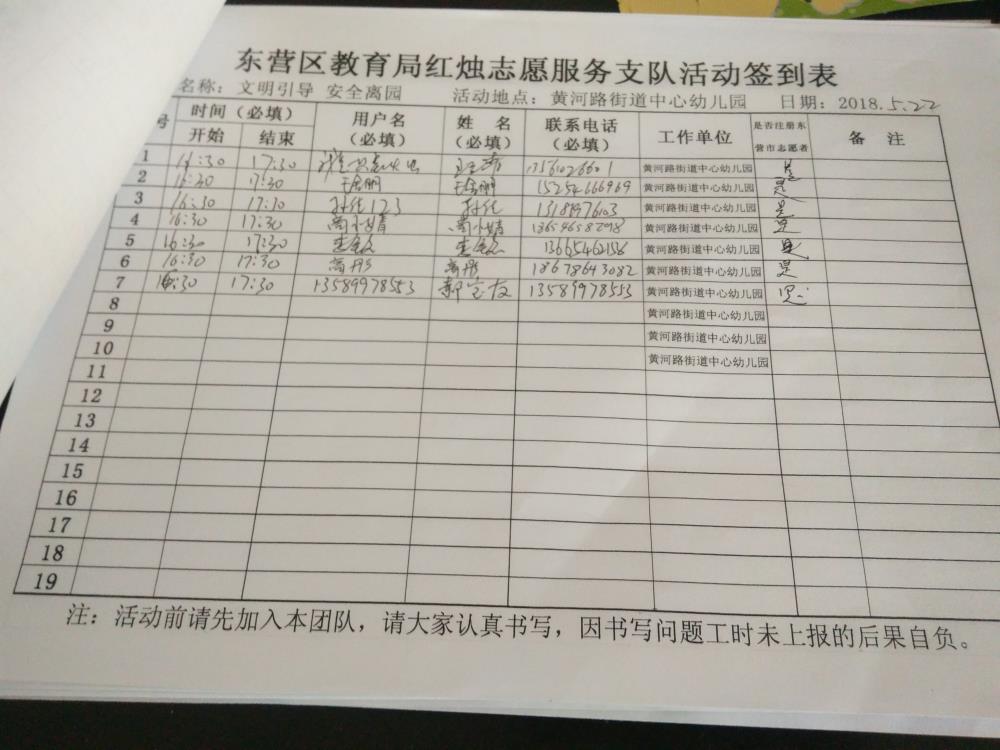 东营区教育局红烛志愿服务支队活动签到表
名称：文明引导 安全离园 活动地点：黄河路街道中心幼儿园 日期：2018.5.22
号 时间（必填） 用户名（必填） 姓 名（必填） 联系电话（必填） 工作单位 是否注册东营市志愿者 备 注
开始 结束
1 16:30 17:30 黄河路街道中心幼儿园 是
2 16:30 17:30 15254666969 黄河路街道中心幼儿园 是
3 16:30 17:30 孙佳123 孙佳 13181997603 黄河路街道中心幼儿园 是
4 16:30 17:30 13654658298 黄河路街道中心幼儿园 是
5 16:30 17:30 黄河路街道中心幼儿园 是
6 16:30 17:30 高彤 高彤 18678643082 黄河路街道中心幼儿园 是
7 16:30 17:30 13589978553 郭宝友 13589978553 黄河路街道中心幼儿园 是
8 黄河路街道中心幼儿园
9 黄河路街道中心幼儿园
10 黄河路街道中心幼儿园
11
12
13
14
15
16
17
18
19
注：活动前请先加入本团队，请大家认真书写，因书写问题工时未上报的后果自负。